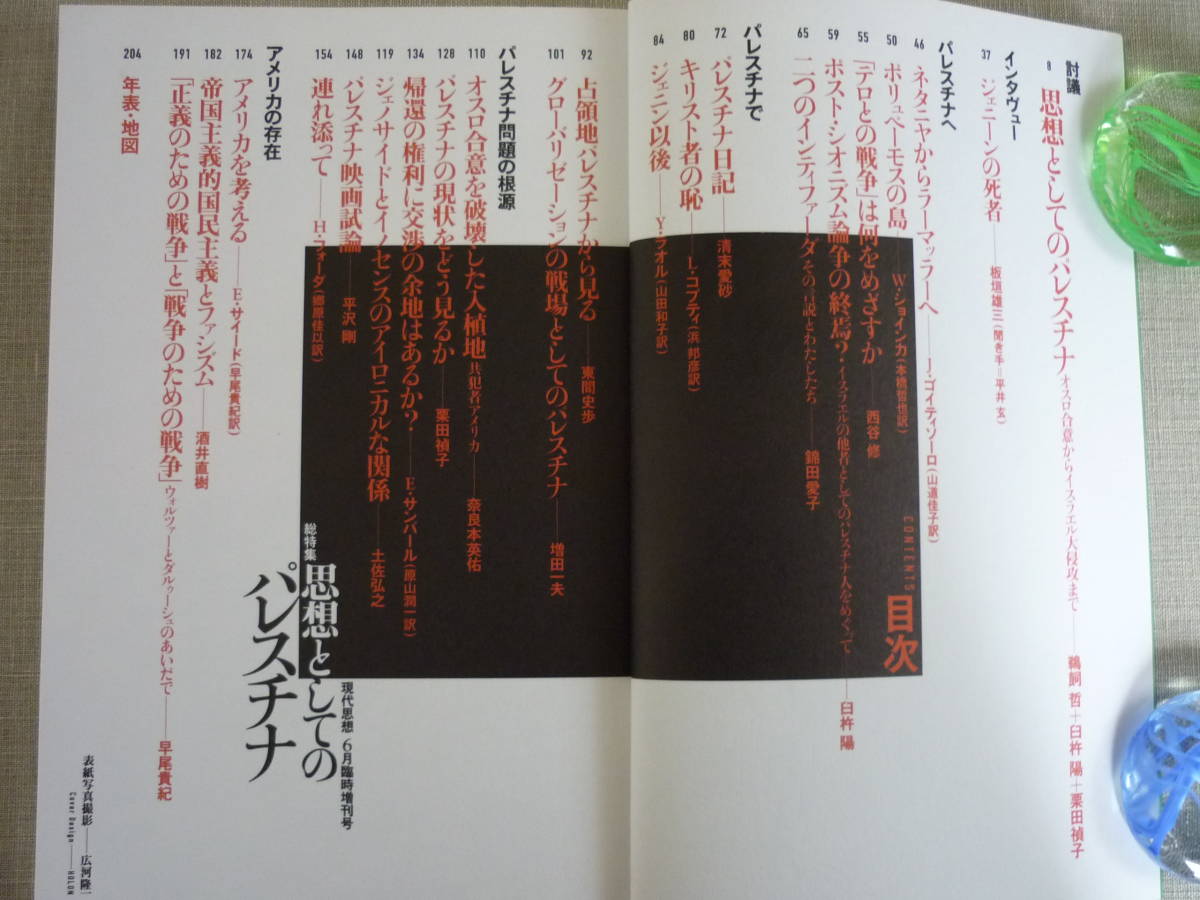 討議
8 思想としてのパレスチナ オスロ合意からイスラエル大侵攻まで——鵜飼 哲+臼杵 陽+栗田禎子
インタヴュー
37 ジェニーンの死者——板垣雄三(聞き手=平井 玄)
パレスチナへ
46 ネタニヤからラーマッラーへ——J・ゴイティソーロ(山道佳子訳)
50 ポリュペーモスの島——W・ショインカ(本橋哲也訳)
55 「テロとの戦争」は何をめざすか——西谷 修
59 ポスト・シオニズム論争の終焉? イスラエルの他者としてのパレスチナ人をめぐって——臼杵 陽
65 二つのインティファーダ その言説とわたしたち——錦田愛子
パレスチナで
72 パレスチナ日記——清末愛砂
80 キリスト者の恥——L・コプティ(浜 邦彦訳)
84 ジェニン以後——Y・ラオル(山田和子訳)
CONTENTS
目次
92 占領地パレスチナから見る——東間史歩
101 グローバリゼーションの戦場としてのパレスチナ——増田一夫
パレスチナ問題の根源
110 オスロ合意を破壊した入植地 共犯者アメリカ——奈良本英佑
128 パレスチナの現状をどう見るか——栗田禎子
134 帰還の権利に交渉の余地はあるか?——E・サンバール(原山潤一訳)
119 ジェノサイドとイノセンスのアイロニカルな関係——土佐弘之
148 パレスチナ映画試論——平沢 剛
154 連れ添って——H・フォーダ(郷原佳以訳)
アメリカの存在
174 アメリカを考える——E・サイード(早尾貴紀訳)
182 帝国主義的国民主義とファシズム——酒井直樹
191 「正義のための戦争」と「戦争のための戦争」 ウォルツァーとダルウィーシュのあいだで——早尾貴紀
204 年表・地図
現代思想 6月臨時増刊号
総特集 思想としての
パレスチナ
表紙写真撮影——広河隆一
Cover Design——HOLON